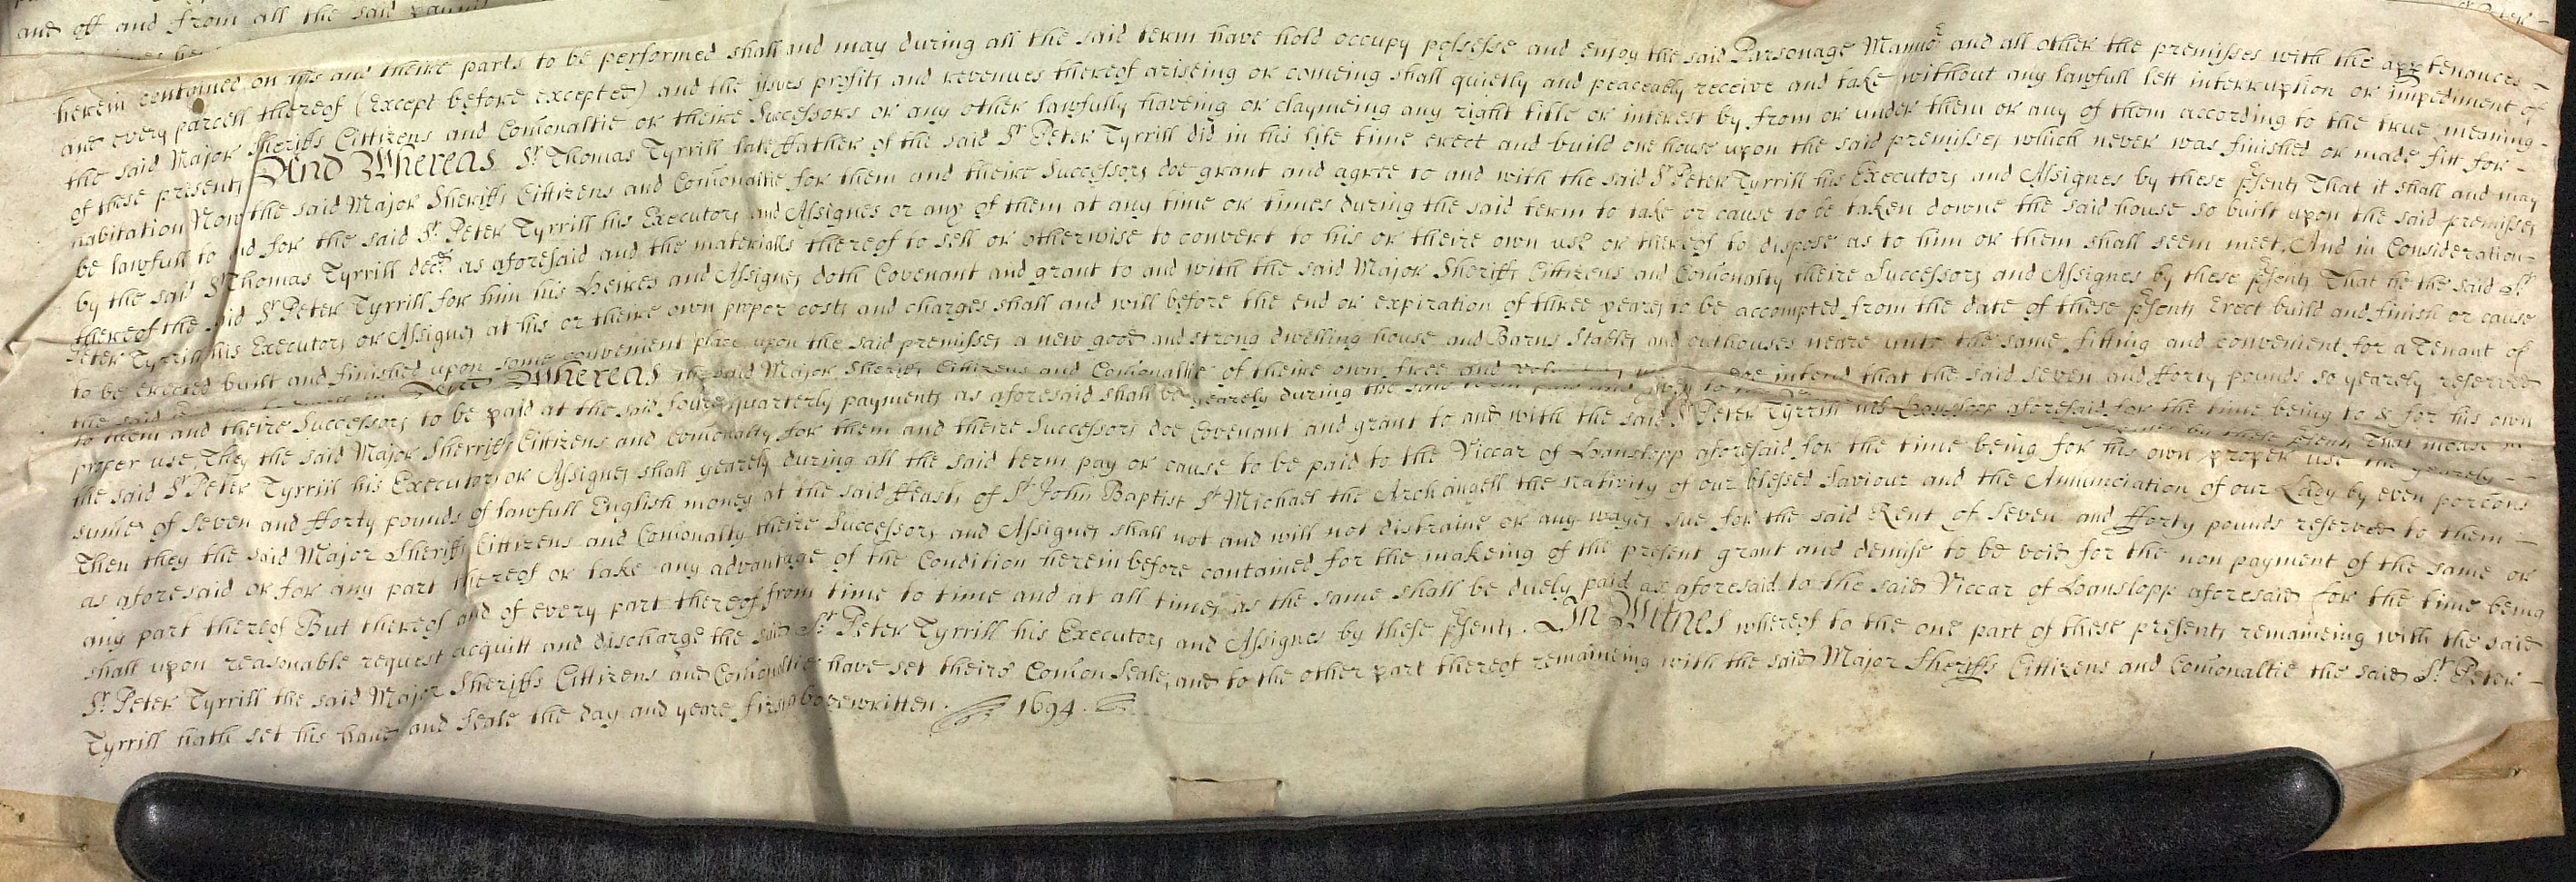 and off and from all the said
herein contained on his and theire parts to be performed shall and may during all the said term have hold occupy possesse and enjoy the said Parsonage Mannor and all other the premisses with the apptenances
and every parcell thereof (Except before excepted) and the issues profitts and revenues thereof ariseing or comeing shall quietly and peaceably receive and take without any lawfull lett interruption or impediment of
the said Major Sheriffs Cittizens and Comonaltie or theire Successors or any other lawfully haveing or claymeing any right title or interest by from or under them or any of them according to the true meaning
of these presents And Whereas Sr. Thomas Tyrrill late ffather of the said Sr. Peter Tyrrill did in his life time erect and build one house upon the said premisses which never was finished or made fitt for
habitation Now the said Major Sheriffs Cittizens and Comonaltie for them and theire Successors doe grant and agree to and with the said Sr. Peter Tyrrill his Executors and Assignes by these psents That it shall and may
be lawfull to and for the said Sr. Peter Tyrrill his Executors and Assignes or any of them at any time or times during the said term to take or cause to be taken downe the said house so built upon the said premisses
by the said Sr Thomas Tyrrill decd. as aforesaid and the materialls thereof to sell or otherwise to convert to his or theire own use or thereof to dispose as to him or them shall seem meet. And in Consideration
thereof the said Sr. Peter Tyrrill for him his Heires and Assignes doth Covenant and grant to and with the said Major Sheriffs Cittizens and Comonalty theire Successors and Assignes by these psents That he the said Sr.
Peter Tyrrill his Executors or Assignes at his or theire own proper costs and charges shall and will before the end or expiration of three yeares to be accompted from the date of these psents Erect build and finish or cause
to be erected built and finished upon some convenient place upon the said premisses a new good and strong dwelling house and Barns Stables and outhouses neare unto the same fitting and convenient for a Tenant of
the said And Whereas the said Major Sheriffs Cittizens and Comonaltie of theire own free and doe intend that the said seven and fforty pounds so yearely reserved
to them and theire Successors to be paid at the said foure quarterly payments as aforesaid shall be yearely during the said term paid and aforesaid for the time being to & for his own
proper use, They the said Major Sherriffs Cittizens and Comonalty for them and theire Successors doe Covenant and grant to and with the said Sr. Peter Tyrrill his by these psents That
the said Sr. Peter Tyrrill his Executors or Assignes shall yearely during all the said term pay or cause to be paid to the Viccar of Hanslopp aforesaid for the time being for his own proper use the yearely
sume of seven and fforty pounds of lawfull English money at the said ffeasts of St. John Baptist St. Michael the Archangell the Nativity of our blessed Saviour and the Annunciation of our Lady by even porcons
Then they the said Major Sheriffs Cittizens and Comonalty theire Successors and Assignes shall not and will not distraine or any wayes sue for the said Rent of seven and fforty pounds reserved to them
as aforesaid or for any part thereof or take any advantage of the Condition herein before contained for the makeing of the present grant and demise to be void for the non payment of the same or
any part thereof But thereof and of every part thereof from time to time and at all times as the same shall be duely paid as aforesaid to the said Viccar of Hanslopp aforesaid for the time being
shall upon reasonable request acquitt and discharge the said Sr. Peter Tyrrill his Executors and Assignes by these psents. In Witnes whereof to the one part of these presents remaineing with the said
Sr. Peter Tyrrill the said Major Sheriffs Cittizens and Comonaltie have set theire Comon Seale, and to the other part thereof remaineing with the said Major Sheriffs Cittizens and Comonaltie the said Sr. Peter
Tyrrill hath set his hand and Seale the day and yeare first abovewritten. 1694.